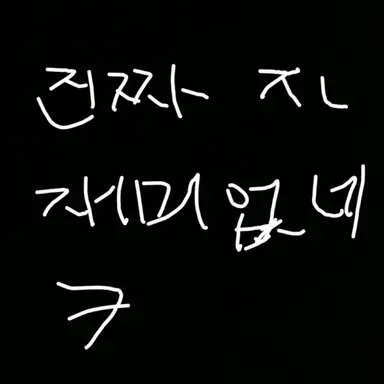 진짜 ㅈㄴ
재미없네
ㅋ